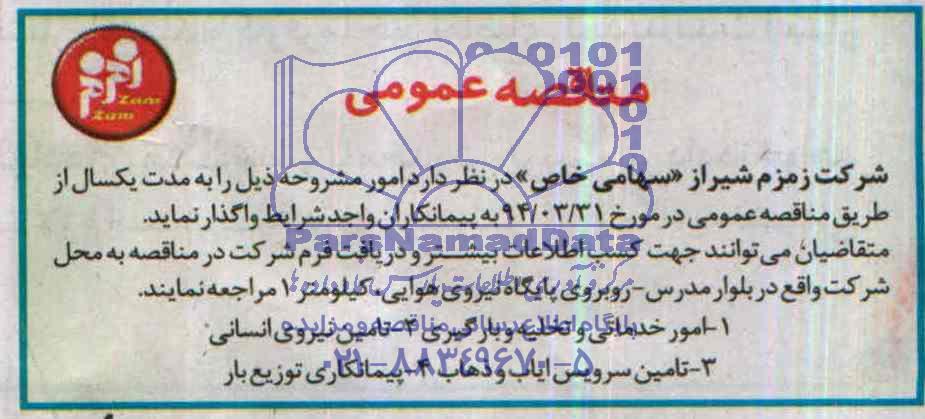 Zam
Zam
مناقصه عمومی
شرکت زمزم شیراز «سهامی خاص» در نظر دارد امور مشروحه ذیل را به مدت یکسال از
طریق مناقصه عمومی در مورخ ۹۴/۰۳/۳۱ به پیمانکاران واجد شرایط واگذار نماید.
متقاضیان می توانند جهت کسب اطلاعات بیشتر و دریافت فرم شرکت در مناقصه به محل
شرکت واقع در بلوار مدرس - روبروی پایگاه نیروی هوایی، کیلومتر ۱ مراجعه نمایند.
۱- امور خدماتی و تخلیه و بارگیری ۲- تامین نیروی انسانی
۳- تامین سرویس ایاب و ذهاب ۴- پیمانکاری توزیع بار
ParsNamadData
۰۲۱-۸۸۳۴۹۶۷۰-۵